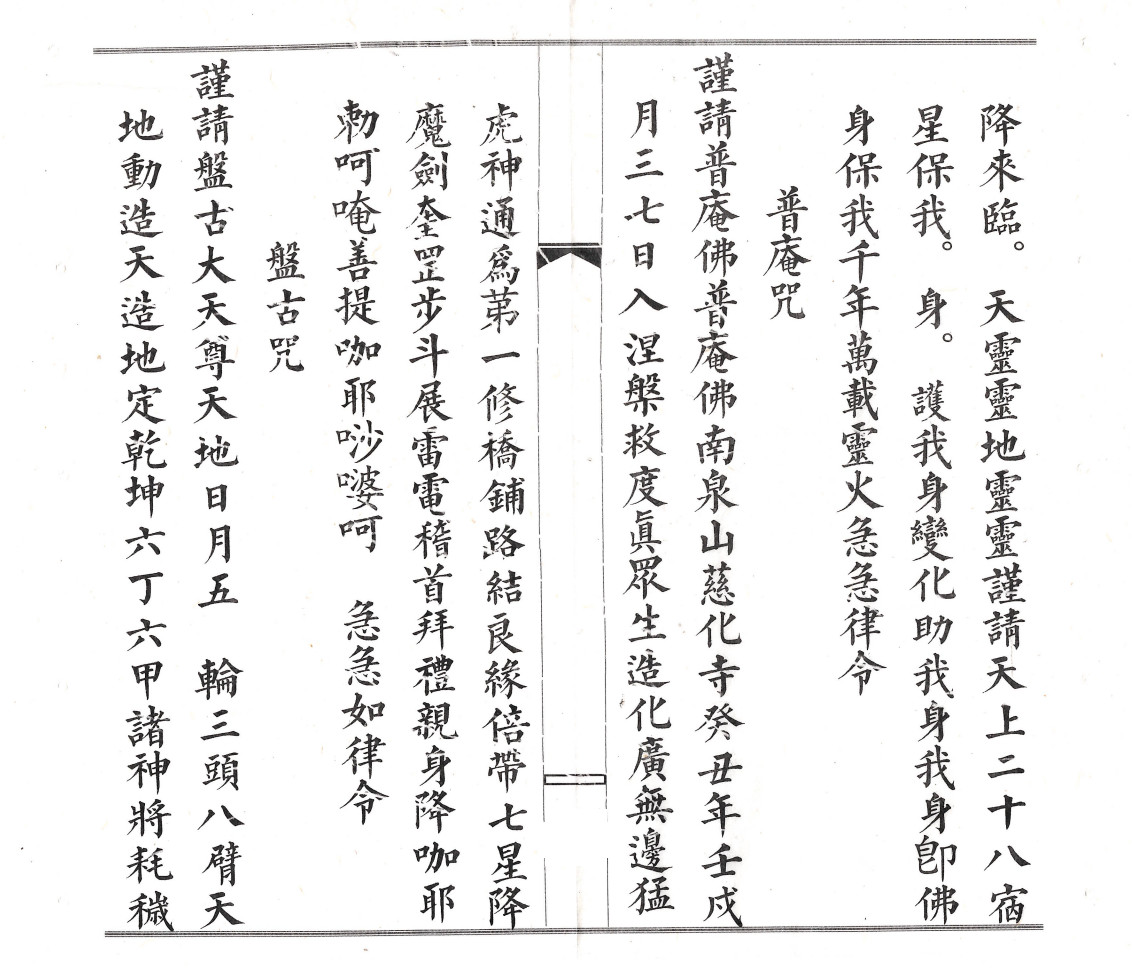 降來臨。　天靈靈地靈靈謹請天上二十八宿
星保我。　身。　護我身變化助我身我身卽佛
身保我千年萬載靈火急急律令
普庵咒
謹請普庵佛普庵佛南泉山慈化寺癸丑年壬戍
月三七日入涅槃救度眞眾生造化廣無邊猛
虎神通爲苐一修橋鋪路結良緣倍帶七星降
魔劍奎罡步斗展雷電稽首拜禮親身降咖耶
勅呵唵善提咖耶唦婆呵　急急如律令
盤古咒
謹請盤古大天尊天地日月五　輪三頭八臂天
地動造天造地定乾坤六丁六甲諸神將耗穢